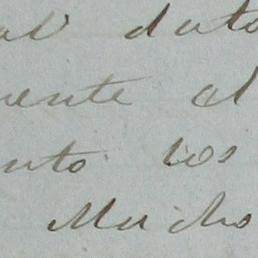 al dato
mente al
nto los
Mucho